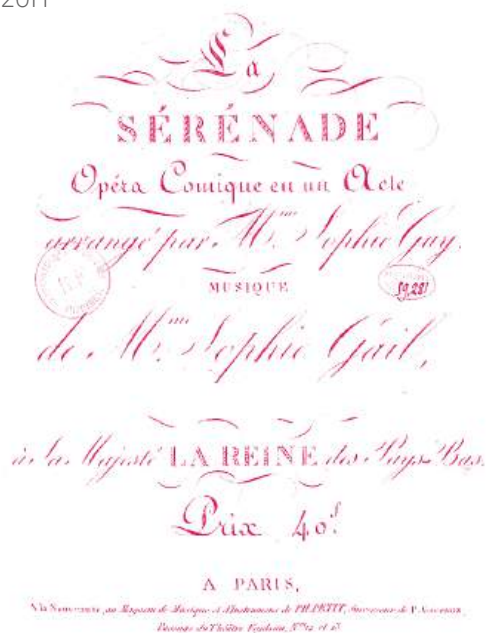 2011
La
SÉRÉNADE
Opéra Comique en un Acte
arrangé par Mme. Sophie Gay.
MUSIQUE
59,281
de Mme. Sophie Gail,
à sa Majesté LA REINE des Pays-Bas.
Prix 40f.
A PARIS,
A la Nouveauté, au Magasin de Musique et d'Instrumens de PH. PETIT, Successeur de P.
Passage du Théâtre Feydeau, Nos. 12 et 13